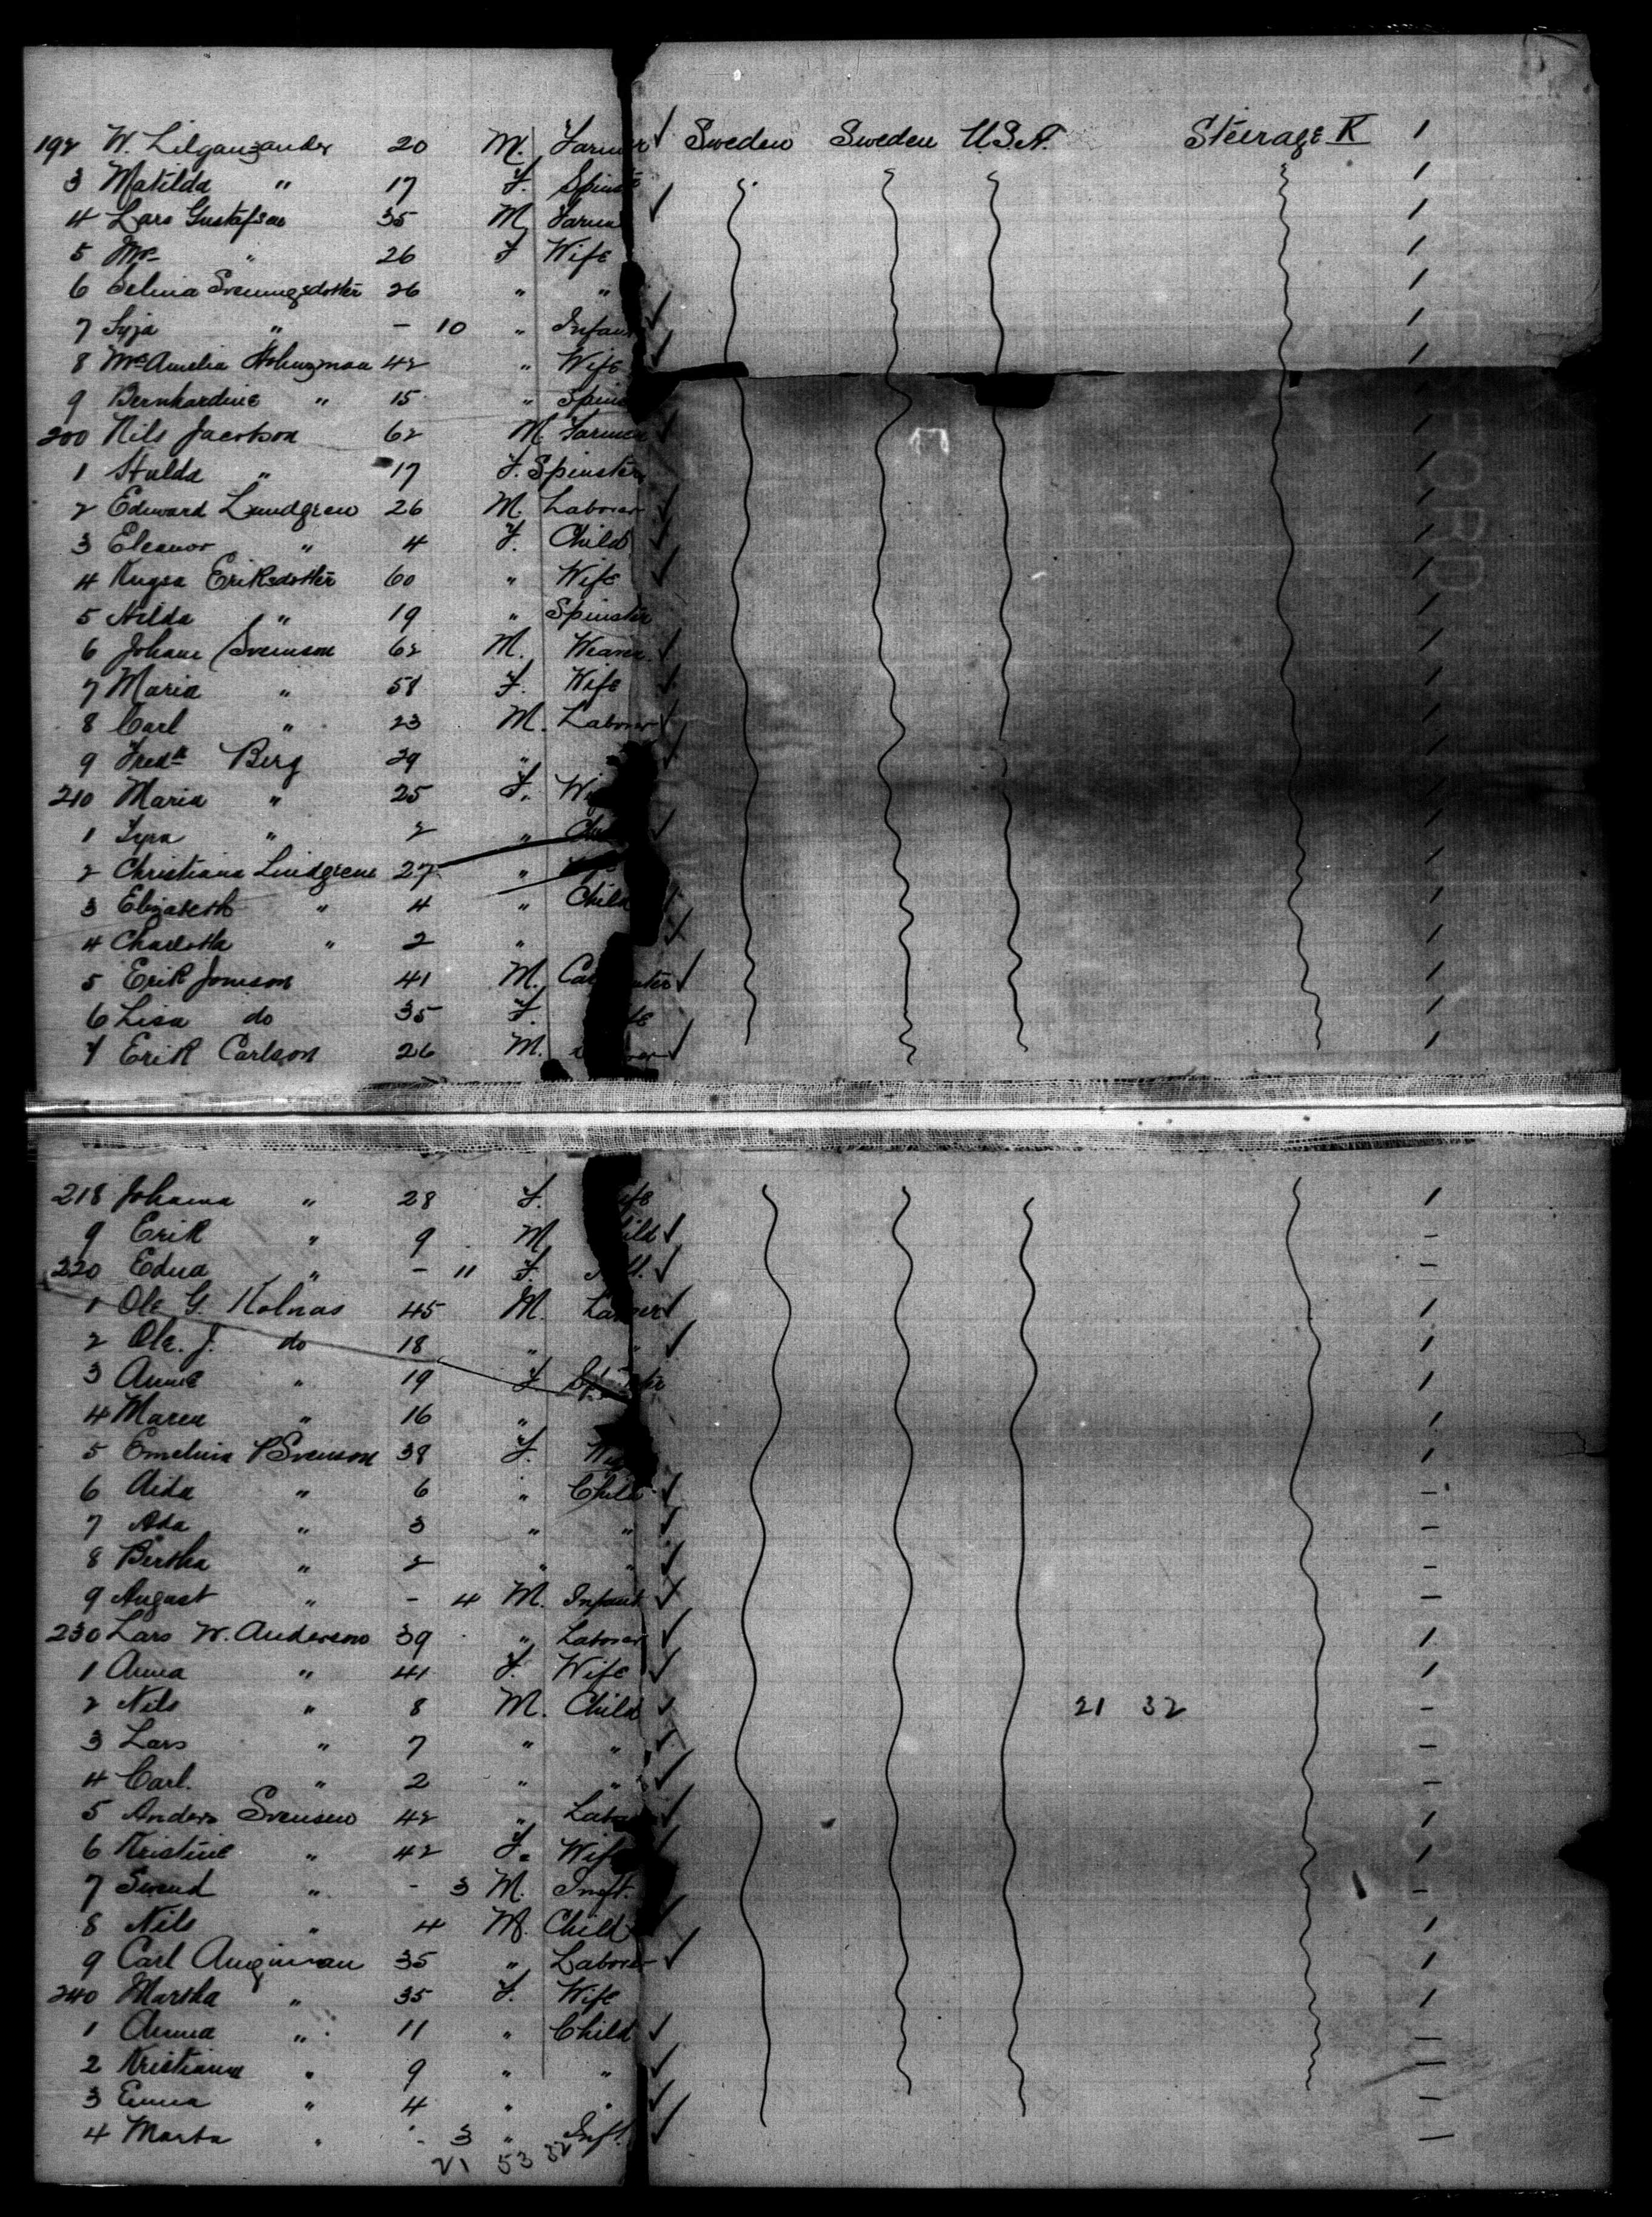 192 W. Lilganzander 20 M. Farmer ✓ Sweden Sweden U.S.A. Steerage R /
3 Matilda " 17 F. Spinst /
4 Lars Gustafson 35 M Farme ✓ /
5 Mrs " 26 F Wife /
6 Selina Svenungsdotter 26 " " /
7 " - 10 " Infant ✓ /
8 Mrs Amelia 42 " Wife ✓ /
9 Bernhardine " 15 " Spins /
200 Nils Jacobson 62 M. Farmer ✓ /
1 Hulda " 17 F. Spinster /
2 Edward Lundgren 26 M. Laborer ✓ /
3 Eleanor " 4 F. Child ✓ /
4 Eriksdotter 60 " Wife ✓ /
5 Hilda " 19 " Spinster /
6 Johan Svenson 62 M. Weaver ✓ /
7 Maria " 58 F. Wife ✓ /
8 Carl " 23 M. Laborer ✓ /
9 Fredk Berg 29 " ✓ /
210 Maria " 25 F. Wi /
1 Tyra " 2 " Ch ✓ /
2 Christiana Lindgren 27 " /
3 Elizabeth " 4 " Child ✓ /
4 Charlotta " 2 " ✓ /
5 Erik Jonson 41 M. Car nter ✓ /
6 Lisa do 35 F. fe /
7 Erik Carlson 26 M. rer ✓ /
218 Johanna " 28 F. ife /
9 Erik " 9 M ild ✓ –
220 Edna " - 11 F. ✓ –
1 Ole G. Kolnas 45 M. La rer ✓ /
2 Ole. J. do 18 " " ✓ /
3 Annie " 19 F Sp ter /
4 Maren " 16 " /
5 Emelina P Svenson 38 F. Wi /
6 Aida " 6 " Child ✓ –
7 Ada " 3 " " ✓ –
8 Bertha " 2 " " ✓ –
9 August " - 4 M. Infant ✓ –
230 Lars W. Anderson 39 " Laborer ✓ /
1 Anna " 41 F. Wife ✓ /
2 Nils " 8 M. Child ✓ 21 32 –
3 Lars " 7 " " ✓ –
4 Carl. " 2 " " ✓ –
5 Anders Svensen 42 " Labo ✓ /
6 Kristine " 42 F. Wife ✓ /
7 Svend " - 3 M. Inft. –
8 Nils " 4 M. Child ✓ /
9 Carl 35 " Laborer ✓ /
240 Martha " 35 F. Wife /
1 Anna " 11 " Child ✓ –
2 Kristiana " 9 " " ✓ –
3 Emma " 4 " " ✓ –
4 Marta " - 3 " Inft. ✓ –
21 53 32